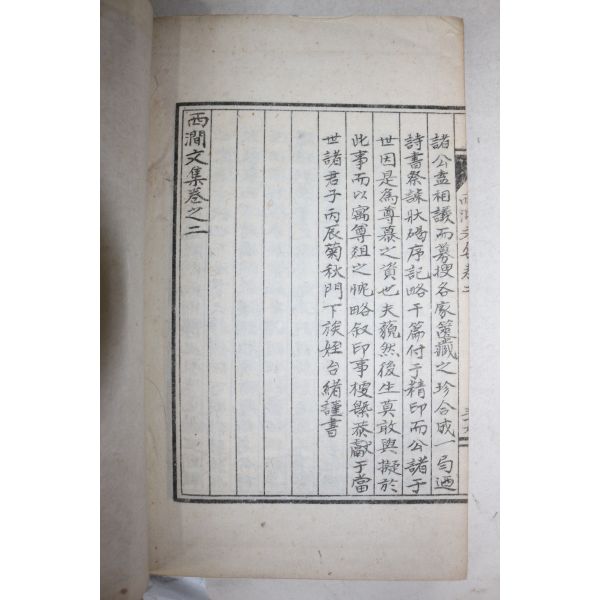 諸公盍相議而募搜各家篋藏之珍合成一局迺
詩書祭誄狀碣序記略干篇付于精印而公諸于
世因是爲尊慕之資也夫藐然後生莫敢與擬於
此事而以寓尊祖之忱略叙印事梗槩恭獻于當
世諸君子丙辰菊秋門下族姪台緖謹書
西澗文集卷之二